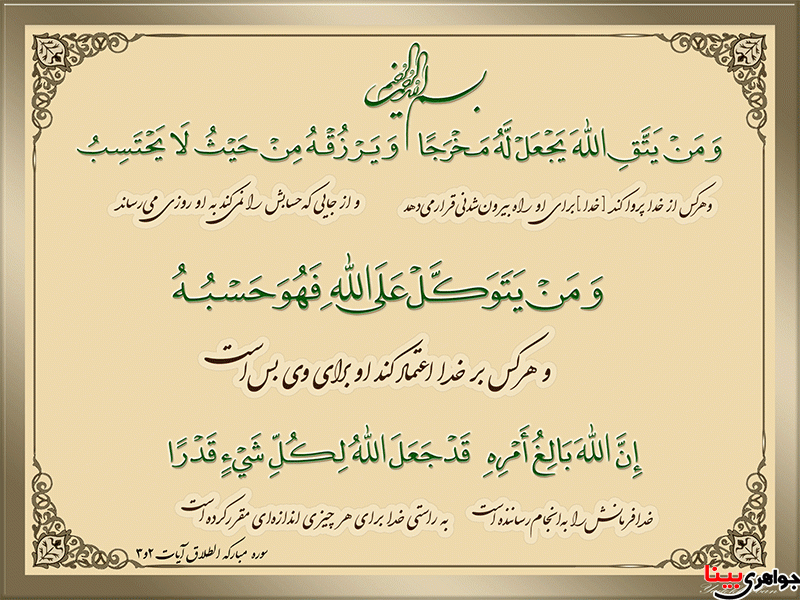 بسم الله الرحمن الرحیم
وَ مَنْ يَتَّقِ اللهَ يَجْعَلْ لَهُ مَخْرَجًا وَ يَرْزُقْهُ مِنْ حَيْثُ لَا يَحْتَسِبُ
و هرکس از خدا پروا کند [خدا] برای او راه بیرون‌شدنی قرار می‌دهد و از جایی که حسابش را نمی‌کند به او روزی می‌رساند
وَ مَنْ يَتَوَكَّلْ عَلَى اللهِ فَهُوَ حَسْبُهُ
و هرکس بر خدا اعتماد کند او برای وی بس است
إِنَّ اللهَ بَالِغُ أَمْرِهِ قَدْ جَعَلَ اللهُ لِكُلِّ شَيْءٍ قَدْرًا
خدا فرمانش را به انجام رساننده است به راستی خدا برای هر چیزی اندازه‌ای مقرر کرده است
سوره مبارکه الطلاق آیات ۲و۳
جواهری بینا